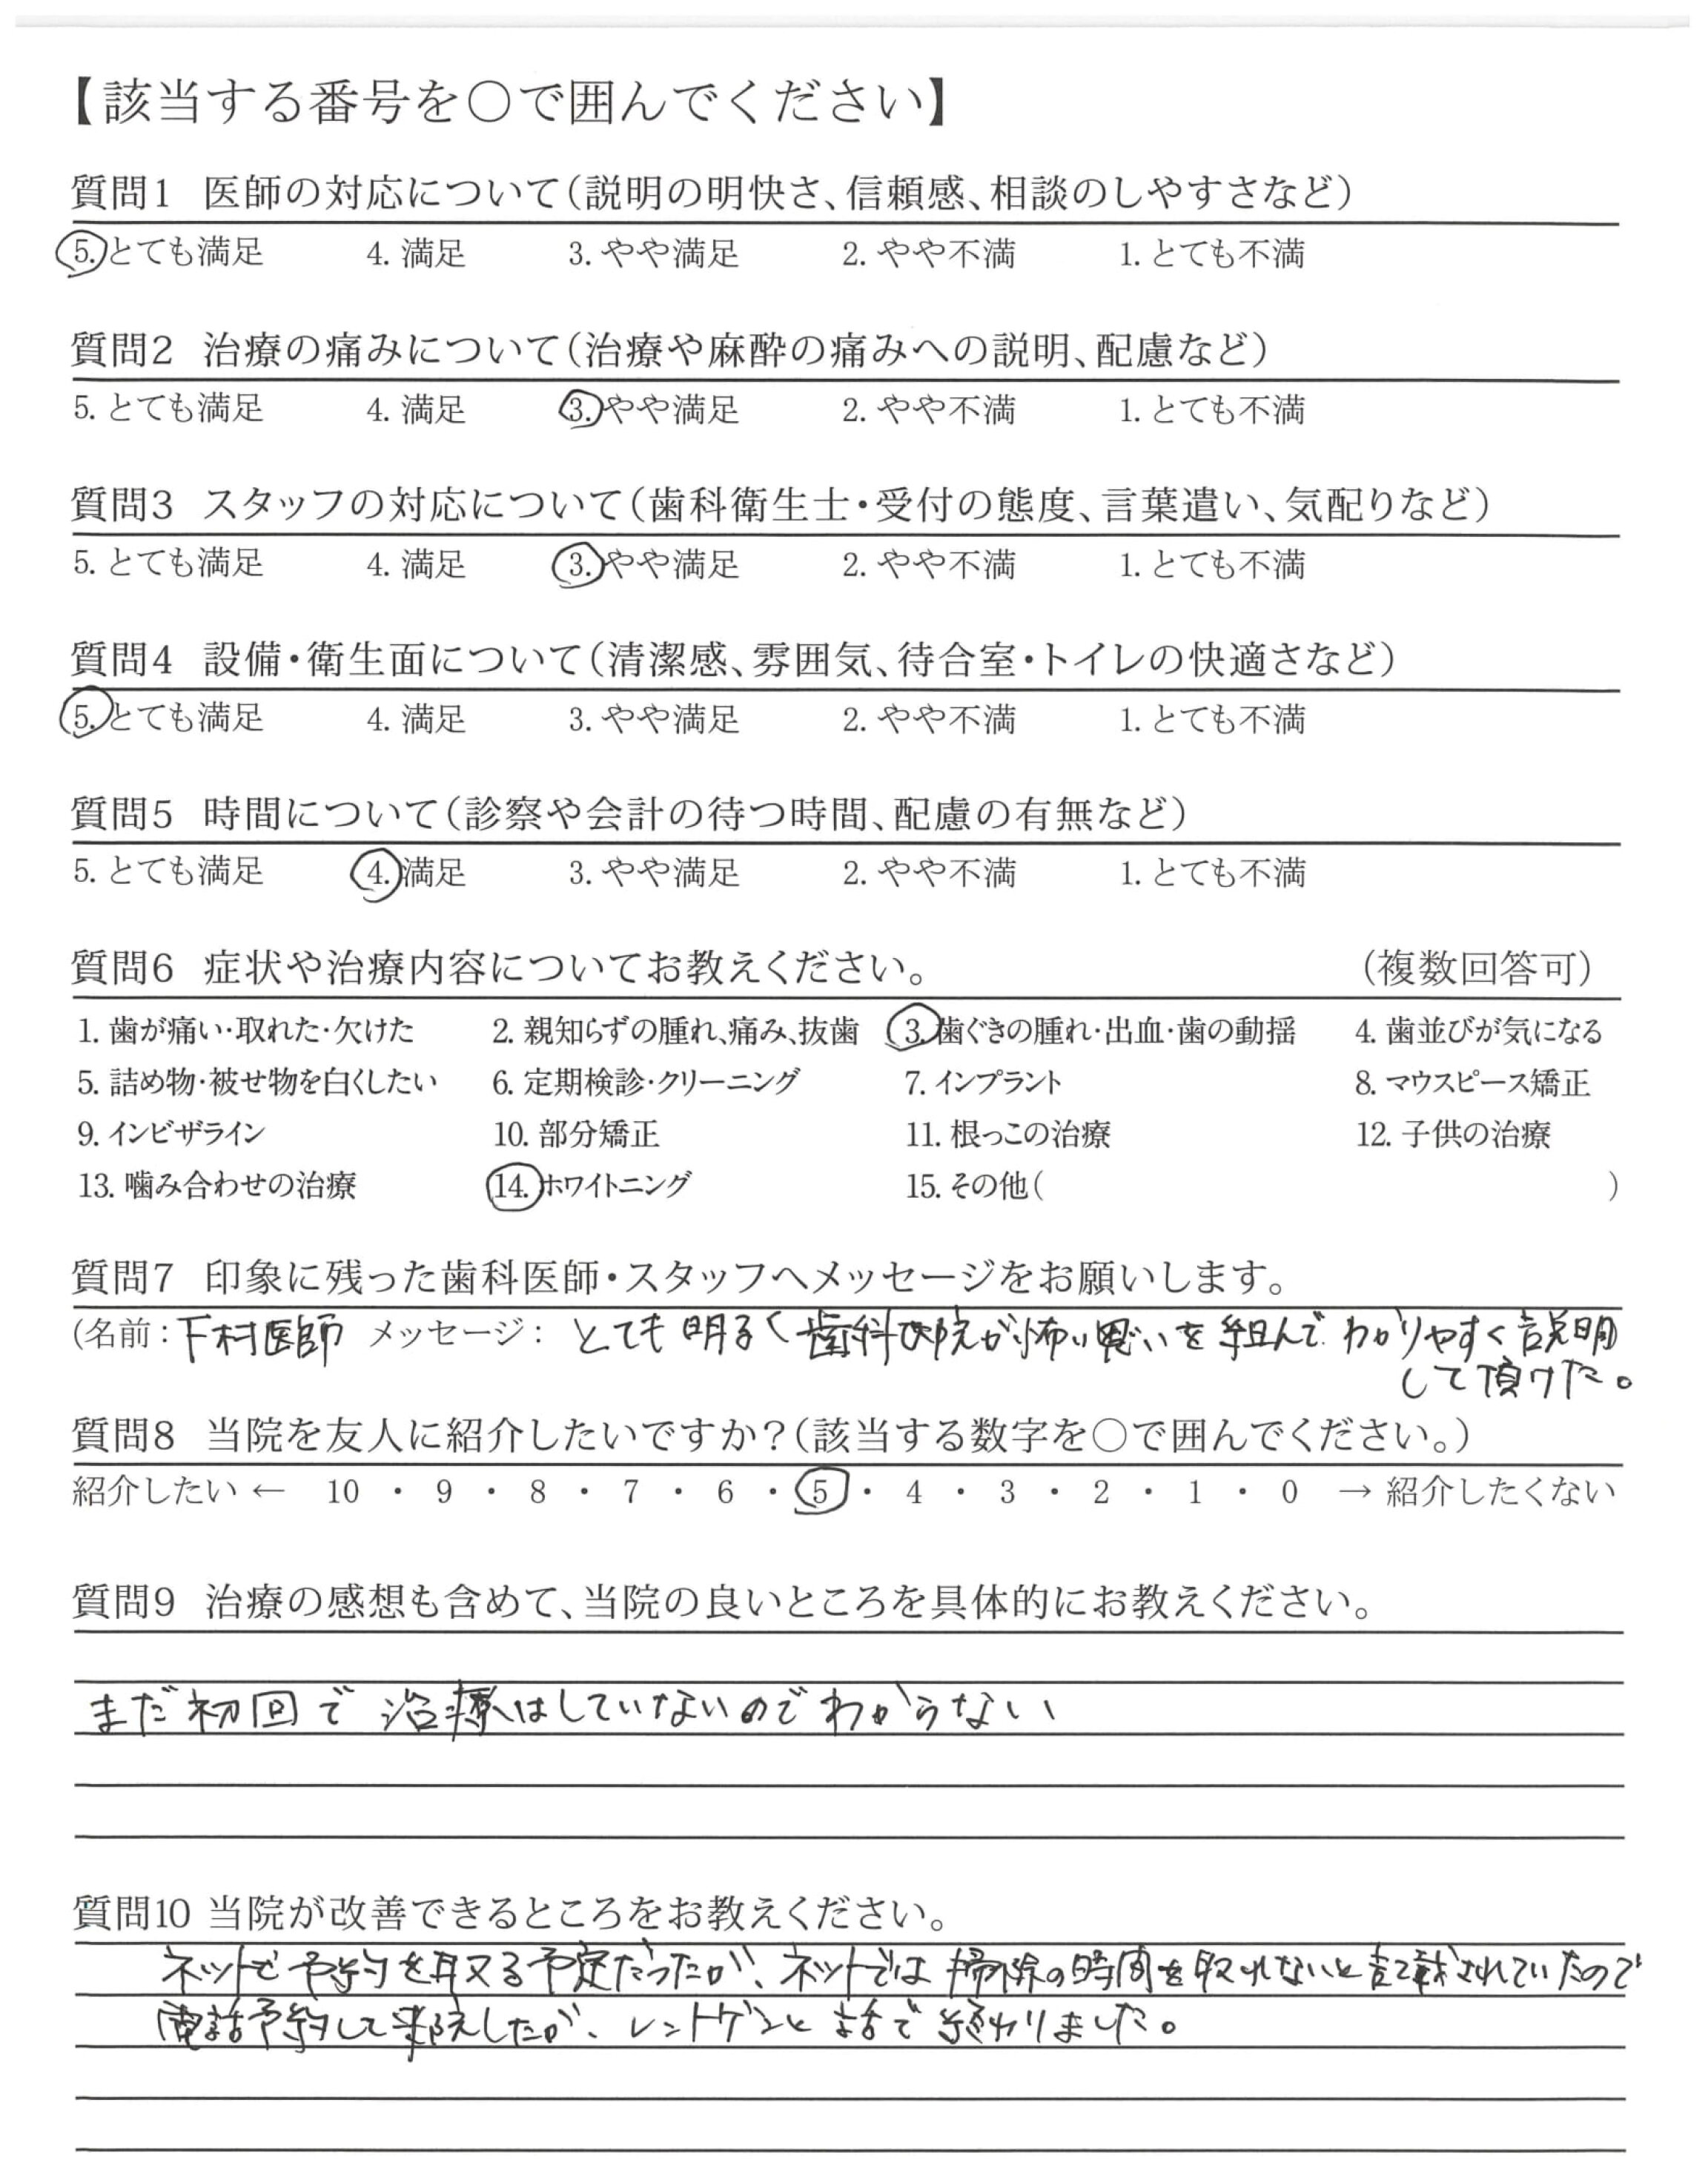 【該当する番号を○で囲んでください】
質問1 医師の対応について(説明の明快さ、信頼感、相談のしやすさなど)
5. とても満足 4. 満足 3. やや満足 2. やや不満 1. とても不満
質問2 治療の痛みについて(治療や麻酔の痛みへの説明、配慮など)
5. とても満足 4. 満足 3. やや満足 2. やや不満 1. とても不満
質問3 スタッフの対応について(歯科衛生士・受付の態度、言葉遣い、気配りなど)
5. とても満足 4. 満足 3. やや満足 2. やや不満 1. とても不満
質問4 設備・衛生面について(清潔感、雰囲気、待合室・トイレの快適さなど)
5. とても満足 4. 満足 3. やや満足 2. やや不満 1. とても不満
質問5 時間について(診察や会計の待つ時間、配慮の有無など)
5. とても満足 4. 満足 3. やや満足 2. やや不満 1. とても不満
質問6 症状や治療内容についてお教えください。 (複数回答可)
1. 歯が痛い・取れた・欠けた 2. 親知らずの腫れ、痛み、抜歯 3. 歯ぐきの腫れ・出血・歯の動揺 4. 歯並びが気になる
5. 詰め物・被せ物を白くしたい 6. 定期検診・クリーニング 7. インプラント 8. マウスピース矯正
9. インビザライン 10. 部分矯正 11. 根っこの治療 12. 子供の治療
13. 噛み合わせの治療 14. ホワイトニング 15. その他( )
質問7 印象に残った歯科医師・スタッフへメッセージをお願いします。
(名前：下村医師 メッセージ： とても明るく歯科医院が怖い思いを組んで わかりやすく説明
して頂けた。
質問8 当院を友人に紹介したいですか？(該当する数字を○で囲んでください。)
紹介したい ← 10 ・ 9 ・ 8 ・ 7 ・ 6 ・ 5 ・ 4 ・ 3 ・ 2 ・ 1 ・ 0 → 紹介したくない
質問9 治療の感想も含めて、当院の良いところを具体的にお教えください。
まだ初回で 治療はしていないのでわからない
質問10 当院が改善できるところをお教えください。
ネットで予約を取る予定だったが、ネットでは掃除の時間を取れないと記載されていたので
電話予約して来院したが、レントゲンと話で終わりました。